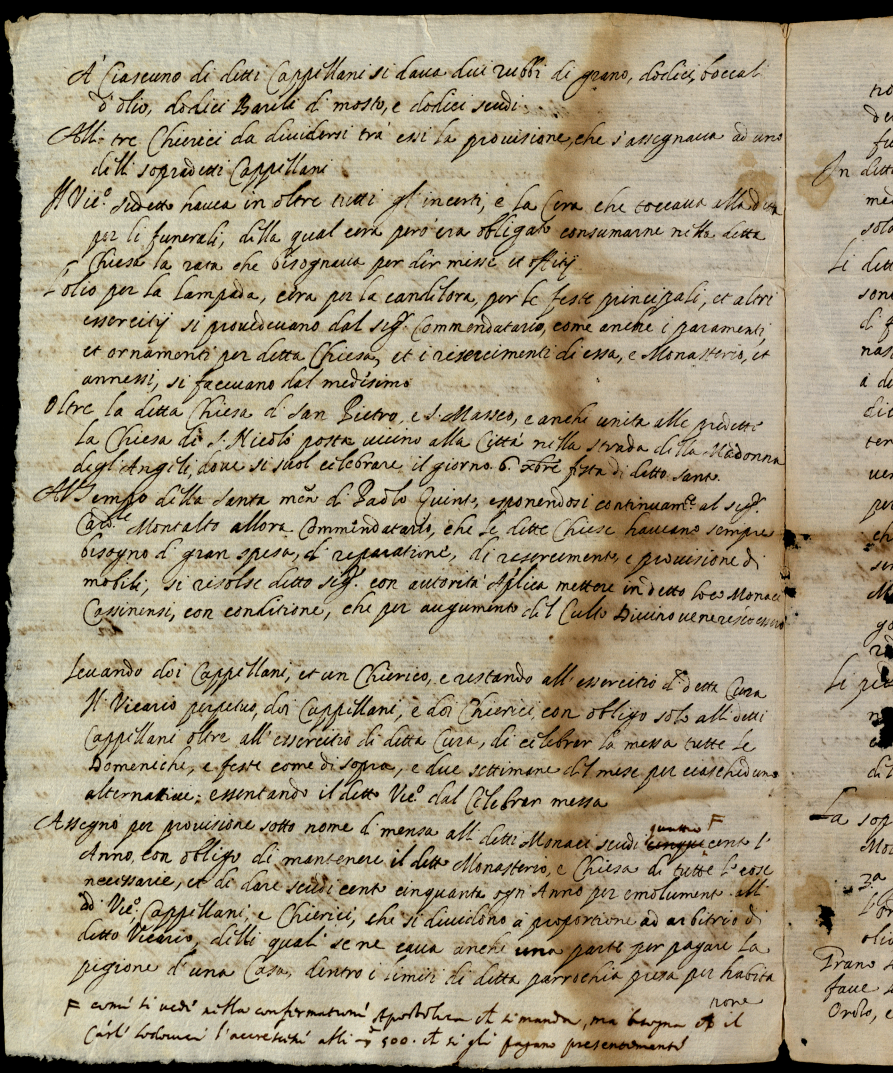 A' Ciascuno di detti Cappellani si daua dui rubbi di grano, dodici boccali
d'olio, dodici Barili di mosto, e dodici scudi.
Alli tre Chierici da diuidersi trà essi la prouisione, che s'assegnaua ad uno
delli sopradetti Cappellani
Il Vic.º sudetto hauea in oltre tutti gl'incerti, e la Cera che toccaua alla detta
per li funerali, della qual cera però era obligato consumarne nella detta
Chiesa la rata che bisognaua per dir messe et offitij
L'olio per la Lampada, cera per la candelora, per le feste principali, et altri
essercitij si prouedeuano dal sig.r Commendatario, come anche i paramenti,
et ornamenti per detta Chiesa, et i resarcimenti di essa, e Monasterio, et
annessi, si faceuano dal medesimo
Oltre la detta Chiesa di San Pietro, e S. Masseo, e anche unita alle predette
la Chiesa di S. Nicolò posta uicino alla Città nella strada della Madonna
degl'Angeli, doue si suol celebrare il giorno 6. Xbre festa di detto santo
Al Tempo della santa mem. di Paolo Quinto, esponendosi continuam.te al sig.r
Card.le Montalto allora Commendatario, che le dette Chiese haueano sempre
bisogno di gran spesa, di reparatione, di resarcimento, e prouisione di
mobili, si risolse detto sig.r con autorità Aplica mettere in detto loco Monaci
Cassinensi, con conditione, che per augumento del Culto Diuino
Leuando doi Cappellani, et un Chierico, e restando all'essercitio di detta Cura
Il Vicario perpetuo, doi Cappellani, e doi Chierici, con obligo solo alli detti
Cappellani oltre all'essercitio di detta Cura, di celebrar la messa tutte le
Domeniche, e feste come di sopra, e due settimane del mese per ciascheduno
alternatiue; essentando il detto Vic.º dal Celebrar messa
Assegnò per prouisione sotto nome di mensa alli detti Monaci scudi cinque quattro F cento l'
Anno, con obligo di mantenere il detto Monasterio, e Chiesa di tutte le cose
necessarie, et di dare scudi cento cinquanta ogn'Anno per emolumento alli
dd. Vic.º, Cappellani, e Chierici, che si diuidono à proportione ad arbitrio di
detto Vicario, delli quali se ne caua anche una parte per pagare la
pigione d'una Casa, dentro i limiti di detta parrochia presa per habita
tione
F come si uede nella confermatione Apostolica che si manda, ma bisogna che il
Card.l Lodouisi l'accrescesse alli 500. che si gli pagano presentemente